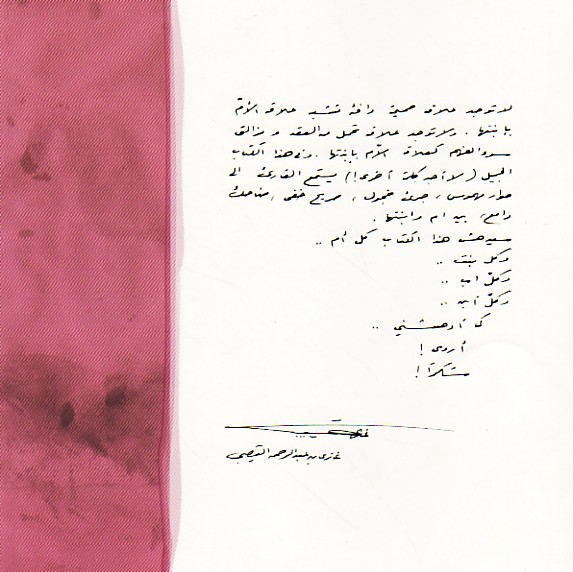 لا توجد علاقة حميمة دافئة تشبه علاقة الأم
بابنتها . ولا توجد علاقة تحمل من العقد و مزالق
سوء الفهم كعلاقة الأم بابنتها . وفي هذا الكتاب
الجميل (ولا أجد كلمة أخرى!) يستمع القارئ الى
حوار مهموس ، جريء خجول ، صريح خفي ، ضاحك
دامع ، بين أم وابنتها .
سيدهش هذا الكتاب كل أم ..
وكل بنت ..
وكل أب ..
وكل ابن ..
كما أدهشني ..
أروى !
شكراً !
غازي بن عبدالرحمن القصيبي